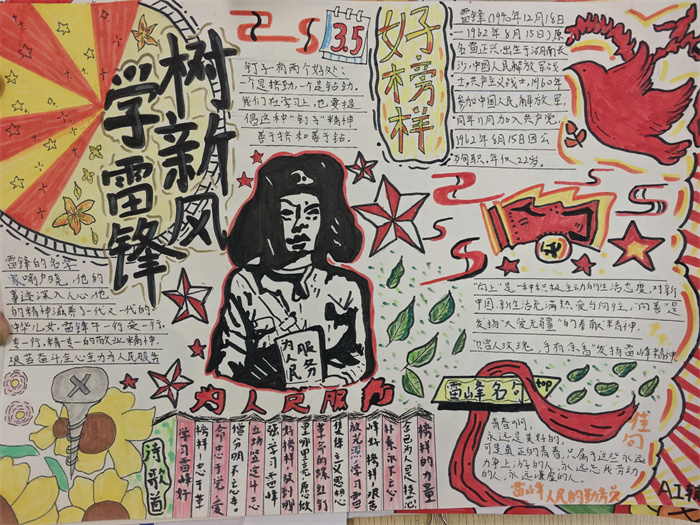 学雷锋
树新风
钉子有两个好处:
一个是挤劲,一个是钻劲,
我们在学习上,也要提
倡这种"钉子"精神
善于挤和善于钻.
3.5
好榜样
雷锋(1940年12月18日
—1962年8月15日)原
名雷正兴,出生于湖南长
沙,中国人民解放军战
士,共产主义战士,1960年
参加中国人民解放军,
同年11月加入共产党,
1962年8月15日因公
殉职,年仅22岁.
雷锋的名字
家喻户晓,他的
事迹深入人心,他
的精神滋养一代又一代的
中华儿女.雷锋干一行爱一行,
专一行,精专一的敬业精神,
艰苦奋斗全心全力为人民服务
为人民
服务
为人民服务
"向上"是一种积极主动的生活态度,对新
中国,新生活充满热爱与向往,"向善"是
发扬"大爱无疆"的奉献精神.
手有余香"发扬雷锋精神
雷峰名句
top
佳句
青春啊,
永远是美好的,
可是真正的青春,只属于这些永远
力争上游的人,永远忘我劳动
的人,永远谦虚的人.
雷峰人民的勤务员
诗歌首
学习雷峰好
榜样 忠于革
命忠于党 爱
憎分明不忘本
立场坚定斗志
强 学习雷峰
好榜样 放到哪
里哪里亮 愿做
革命的螺丝钉
集体主义思想心
放光芒 学习雷
峰好榜样 艰苦
朴素永不忘
榜样的力量